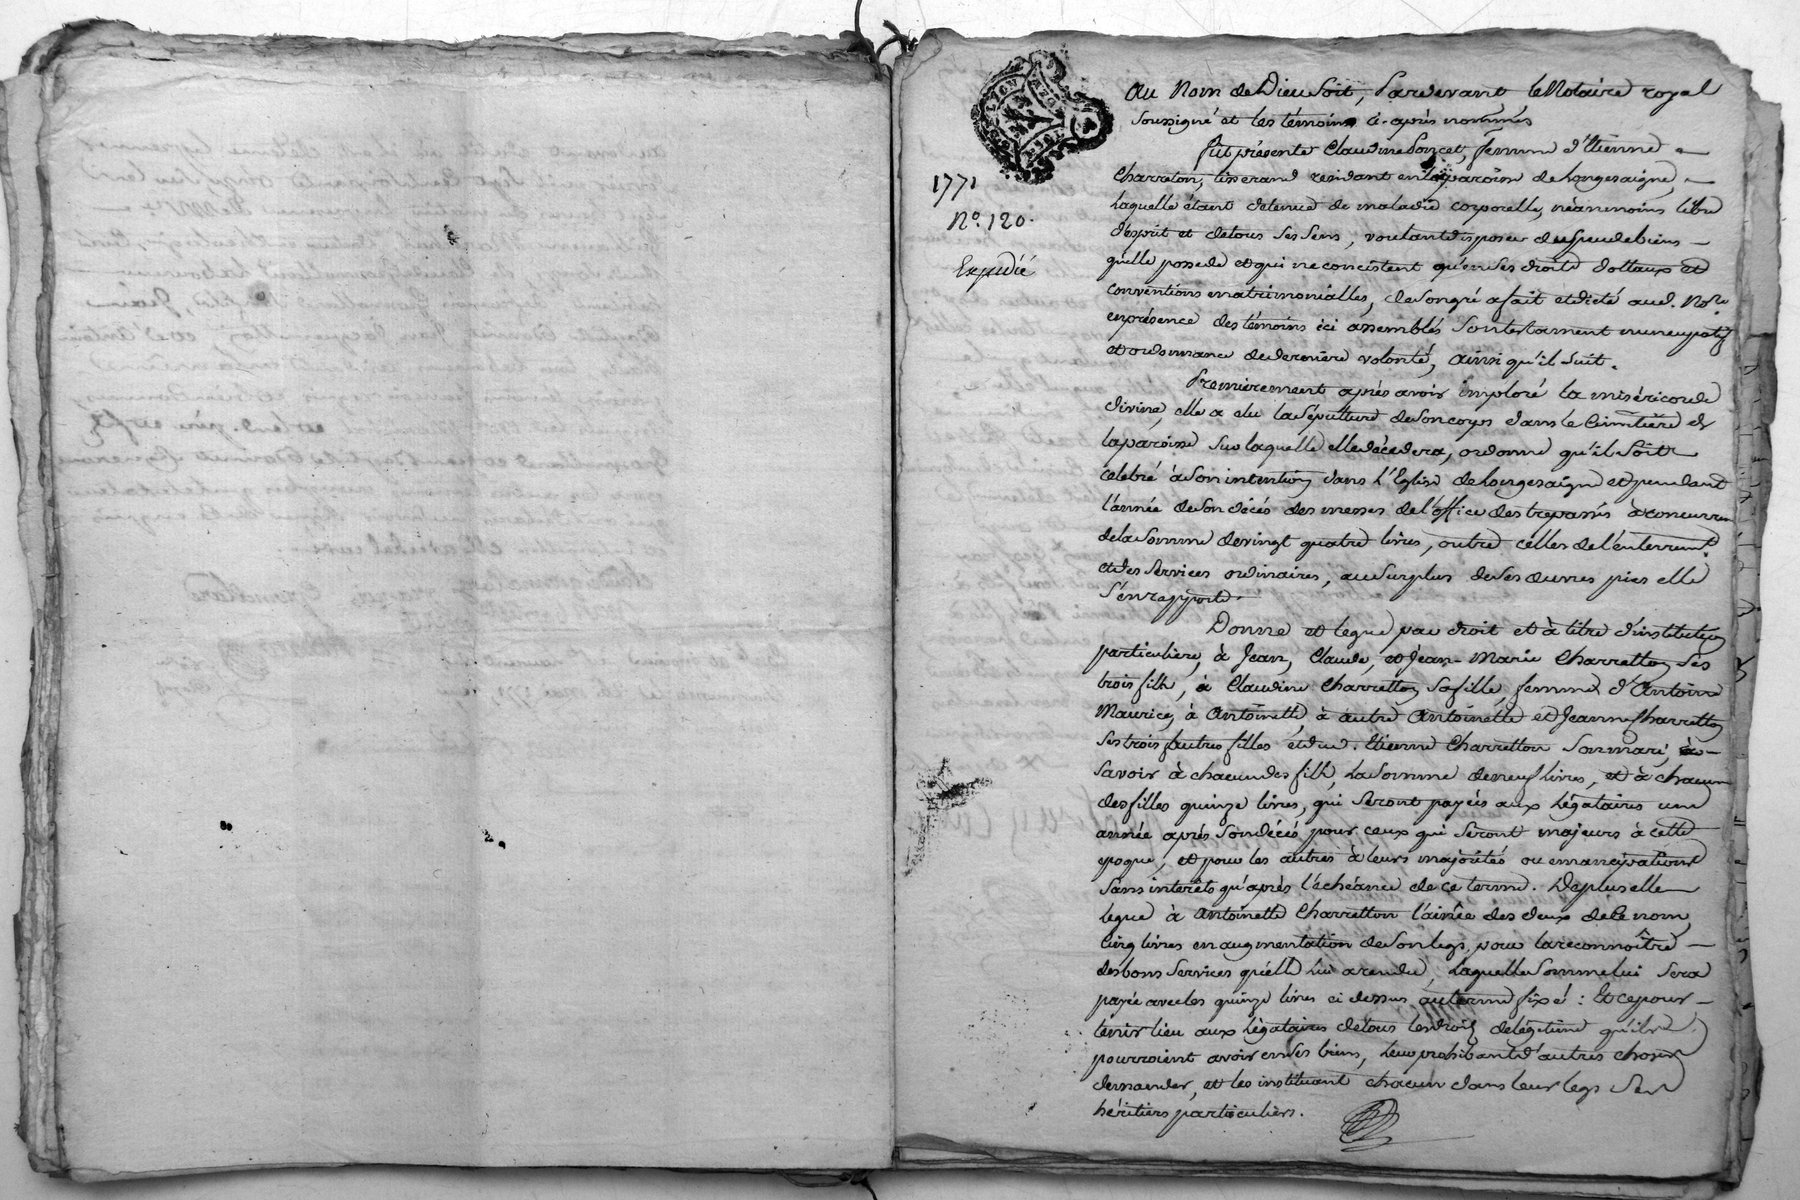 1771
N.º 120.
Expedié
Au Nom de Dieu Soit, Pardevant le Notaire royal
soussigné et les témoins ci-après nommés
fut présente Claudine Poncet, femme d'Etienne
Charreton, tisserand residant en la paroisse de Longesaigne,
Laquelle étant detenue de maladie corporelle, néanmoins libre
d'esprit et de tous ses sens, voulant disposer du peu de biens
qu'elle possede et qui ne concistent qu'en ses droits dottaux et
conventions matrimonialles, de son gré a fait et dicté aud. Nore.
en présence des témoins ici assemblés son testament nuncupatif
et ordonnance de derniere volonté, ainsi qu'il suit.
Premierement après avoir imploré la miséricorde
divine, elle a elu la sépulture de son corps dans le Cimitière de
la paroisse sur laquelle elle décedera, ordonne qu'il soit
célébré à son intention dans l'Eglise de Longesaigne et pendant
l'année de son décés des messes de l'office des trepassés à concurren
de la somme de vingt quatre livres, outre celles de l'enterremt.
et des services ordinaires, au surplus de ses œuvres pies elle
s'en rapporte.
Donne et legue par droit et à titre d'institution
particuliere, à Jean, Claude, et Jean-Marie Charretton ses
trois fils, à Claudine Charretton sa fille, femme d'Antoine
Maurice, à Antoinette, à autre Antoinette et Jeanne Charretton
ses trois autres filles et dud. Etienne Charretton son mari,
savoir à chacun des fils, la somme de neuf livres, et à chacune
des filles quinze livres, qui seront payées aux Légataires une
année après son décés, pour ceux qui seront majeurs à cette
epoque, et pour les autres à leurs majorités ou emancipations
sans interêts qu'après l'échéance de ce terme. De plus elle
legue à Antoinette Charretton l'ainée des deux de ce nom,
cinq livres en augmentation de son legs, pour la reconnoître
des bons services qu'elle lui a rendu, laquelle somme lui sera
payée avec les quinze livres ci dessus au terme fixé : Et ce pour
tenir lieu aux Légataires de tous les droits de légitime qu'ils
pourroient avoir en ses biens, leur prohibant d'autres choses
demander, et les instituant chacun dans leur legs ses
héritiers particuliers.